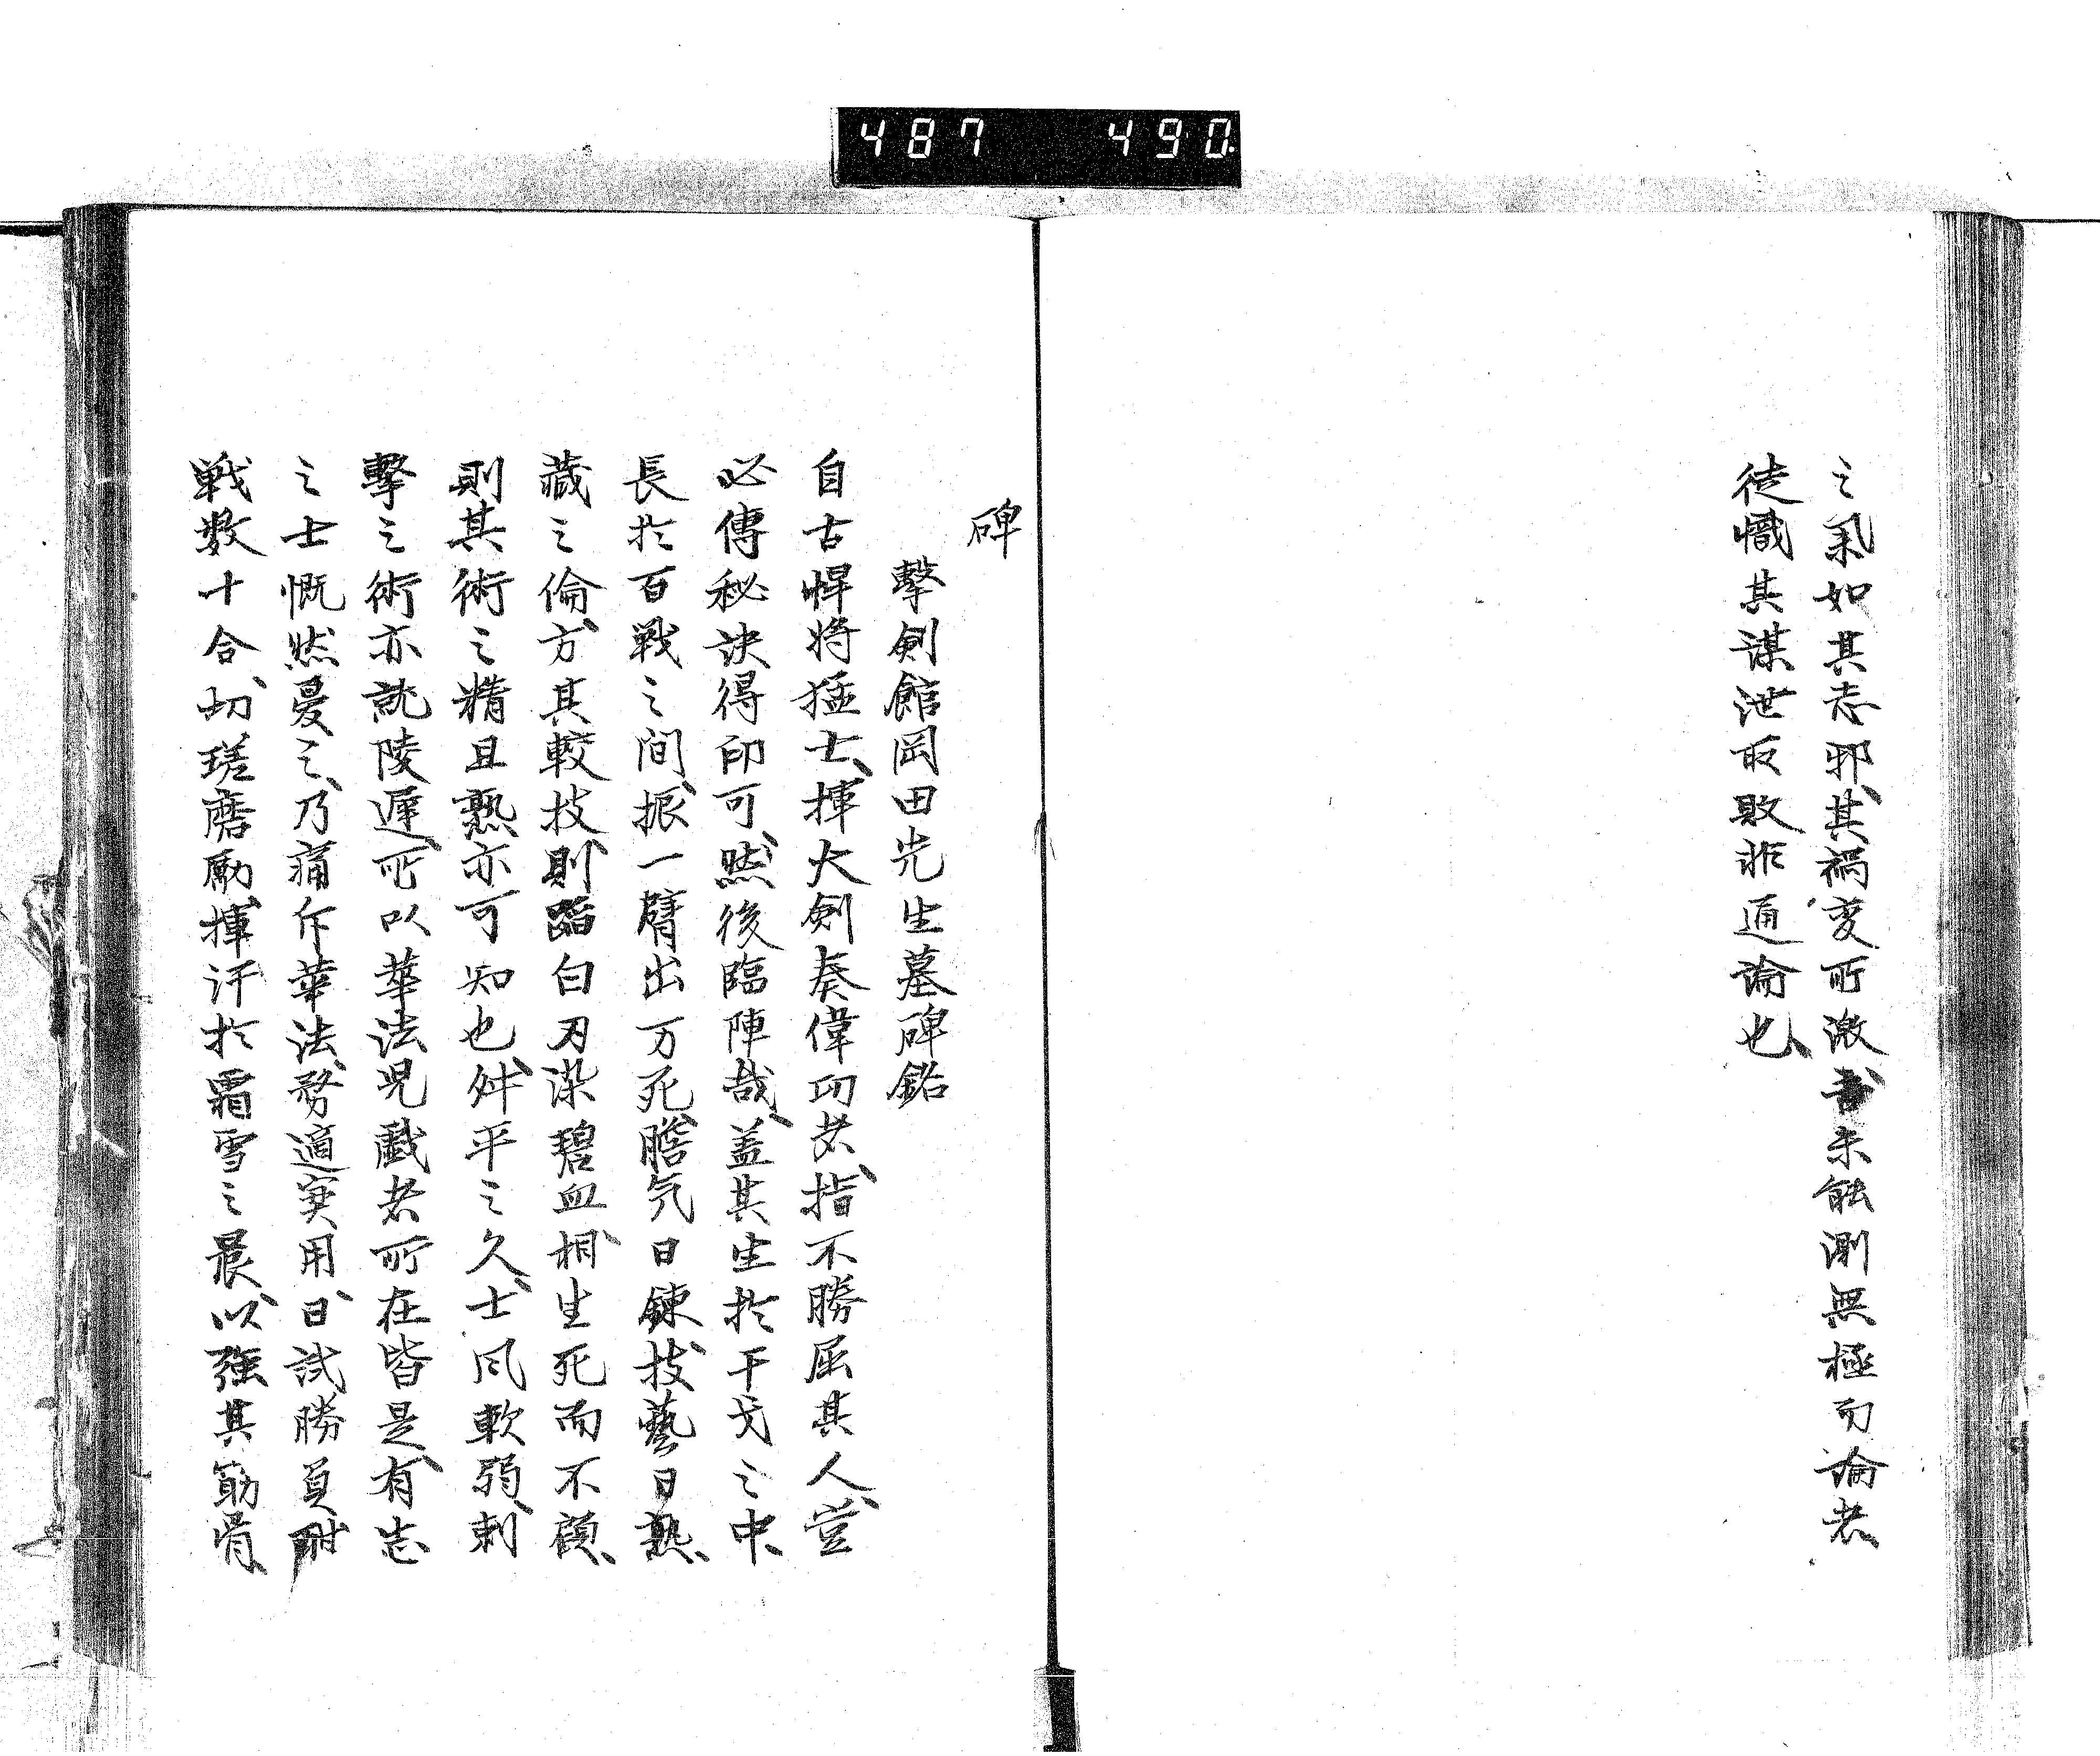 487 490
之氣如其志邪、其禍变所激、吾未能測無極而論者、
徒慨其謀泄取敗非通論也、
碑
擊劍館岡田先生墓碑銘
自古悍将猛士、揮大劍奏偉功者、指不勝屈其人、豈
必傳秘訣得印可、然後臨陣哉、蓋其生於干戈之中、
長於百戰之間、振一臂出万死、膽気日鍊、技藝日熟、
藏之倫、方其較技、則蹈白刃染碧血、拐生死而不顧、
則其術之精且熟亦可知也、舛平之久、士风軟弱、刺
擊之術亦就陵遲、所以華法児戯者所在皆是、有志
之士慨然憂之、乃痛斥華法、務適実用、日試勝負酣
戦数十合、切瑳磨勵、揮汗於霜雪之晨、以强其筋骨、